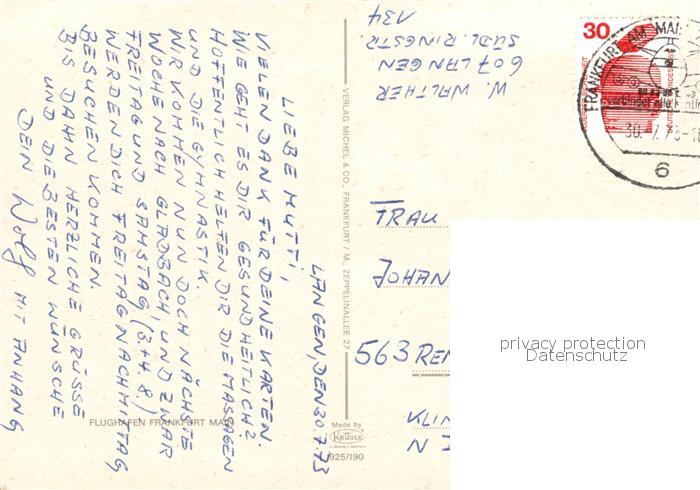 LANGEN, DEN 30.7.73
LIEBE MUTTI,
VIELEN DANK FÜR DEINE KARTEN.
WIE GEHT ES DIR GESUNDHEITLICH?
HOFFENTLICH HELFEN DIR DIE MASSAGEN
UND DIE GYMNASTIK.
WIR KOMMEN NUN DOCH NÄCHSTE
WOCHE NACH GLADBACH, UND ZWAR
FREITAG UND SAMSTAG (3+4.8.)
WERDEN DICH FREITAG NACHMITTAG
BESUCHEN KOMMEN.
BIS DAHIN HERZLICHE GRÜSSE
UND DIE BESTEN WÜNSCHE
DEIN Wolf MIT ANHANG
FLUGHAFEN FRANKFURT MAIN
VERLAG MICHEL & CO., FRANKFURT / M., ZEPPELINALLEE 27
Made by
KRÜGER
925/190
W. WALTHER
607 LANGEN
SÜDL. RINGSTR.
134
30
FRANKFURT AM MAIN
30.-7.73
6
FRAU
JOHAN
563 REM
KLIN
N I
privacy protection
Datenschutz